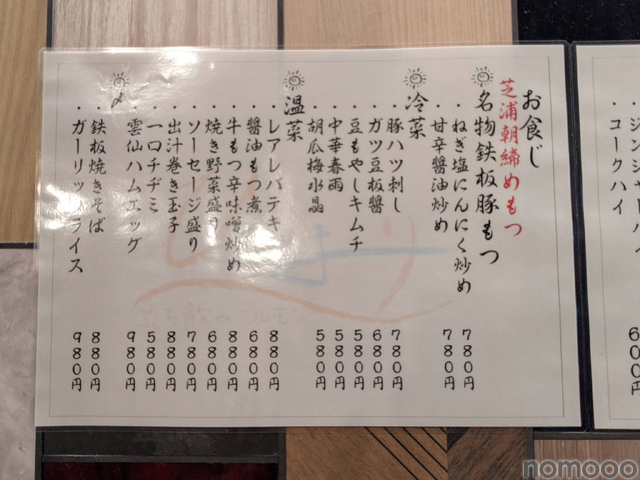 ・コークハイ 600円
お食じ
芝浦朝締めもつ
名物鉄板豚もつ
・ねぎ塩にんにく炒め 780円
・甘辛醤油炒め 780円
冷菜
・豚ハツ刺し 780円
・ガツ豆板醤 680円
・豆もやしキムチ 580円
・中華春雨 580円
・胡瓜梅水晶 580円
温菜
・レアレバテキ 880円
・醤油もつ煮 680円
・牛もつ辛味噌炒め 880円
・焼き野菜盛り 680円
・ソーセージ盛り 780円
・出汁巻き玉子 880円
・一口チヂミ 580円
・雲仙ハムエッグ 980円
〆
・鉄板焼きそば 880円
・ガーリックライス 980円
nomooo